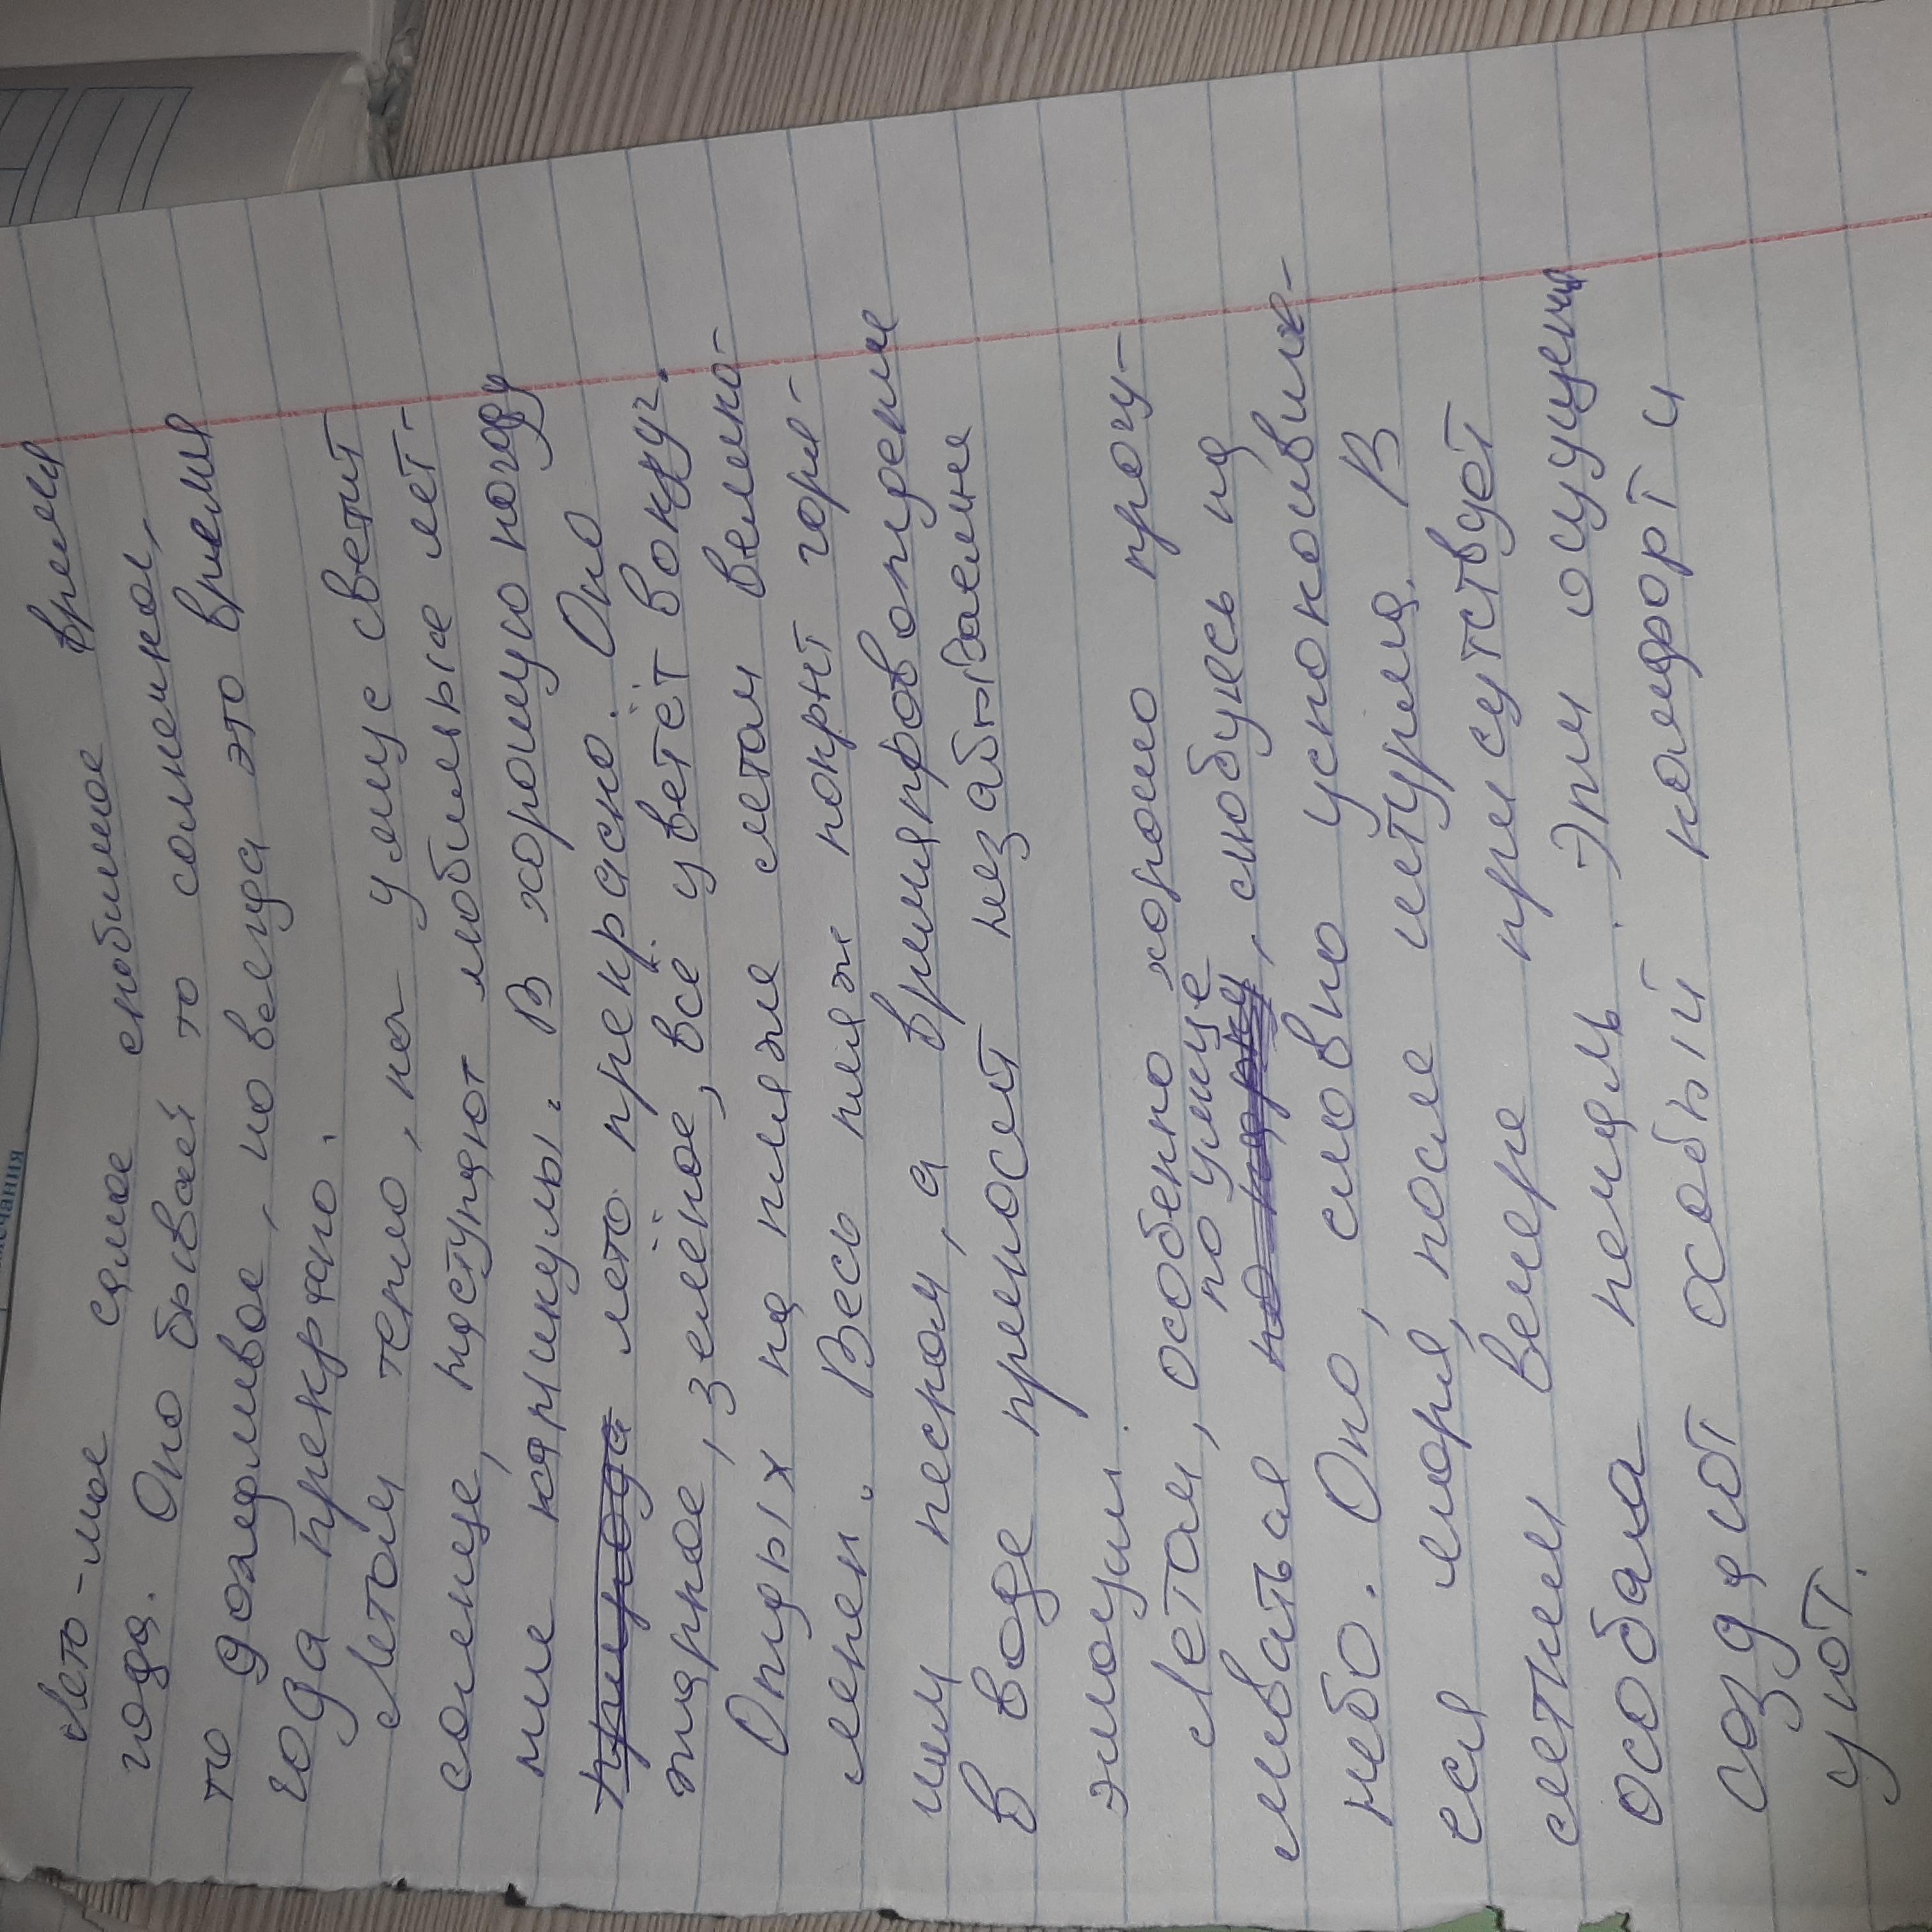 Лето-мое самое любимое время
года. Оно бывает то солнечное,
то дождливое, но всегда это время
года прекрасно.
Летом тепло, на улице светит
солнце, наступают любимые лет-
ние каникулы. В хорошую погоду
природа лето прекрасно. Оно
жаркое, зелёное, всё цветёт вокруг.
Отдых на пляже летом велико-
лепен. Весь пляж покрыт горя-
чим песком, а время провопрдение
в воде приносит незабываемые
эмоции.
Летом, особенно хорошо прогу-
по улице
ливатья по парку, любуясь на
небо. Оно, словно успокоивше-
еся море, после шторма. В
летнем вечере присутствует
особая печаль. Эти ощущения
создают особый комфорт и
уют.
чания